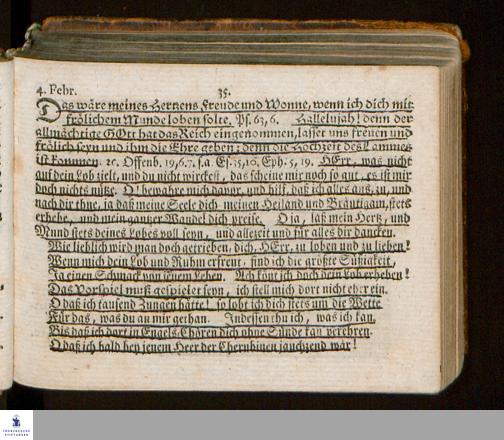 4. Febr. 35.
Das wäre meines Hertzens Freude und Wonne, wenn ich dich mit
frölichem Munde loben solte, Ps. 63, 6. Hallelujah! denn der
allmächtige GOtt hat das Reich eingenommen, lasset uns freuen und
frölich seyn und ihm die Ehre geben; denn die Hochzeit des Lammes
ist kommen. ꝛc. Offenb. 19, 6.7. s.a Es. 35, 10, Eph. 5, 19. HErr, was nicht
auf dein Lob zielt, und du nicht wirckest, das scheine mir noch so gut, es ist mir
doch nichts nütze. O! bewahre mich davor, und hilf, daß ich alles aus, zu, und
nach dir thue, ja daß meine Seele dich meinen Heiland und Bräutigam, stets
erhebe, und mein gantzer Wandel dich preise. O ja, laß mein Hertz, und
Mund stets deines Lobes voll seyn, und allezeit und für alles dir dancken.
Wie lieblich wird man doch getrieben, dich, HErr, zu loben und zu lieben!
Wenn mich dein Lob und Ruhm erfreut, find ich die größte Süßigkeit,
Ja einen Schmack von jenem Leben. Ach könt ich doch dein Lob erheben!
Das Vorspiel muß gespielet seyn, ich stell mich dort nicht eher ein.
O daß ich tausend Zungen hätte! so lobt ich dich stets um die Wette
Für das, was du an mir gethan. Indessen thu ich, was ich kan,
Bis daß ich dort in Engels-Chören dich ohne Sünde kan verehren.
O daß ich bald bey jenem Heer der Cherubinen jauchzend wär!